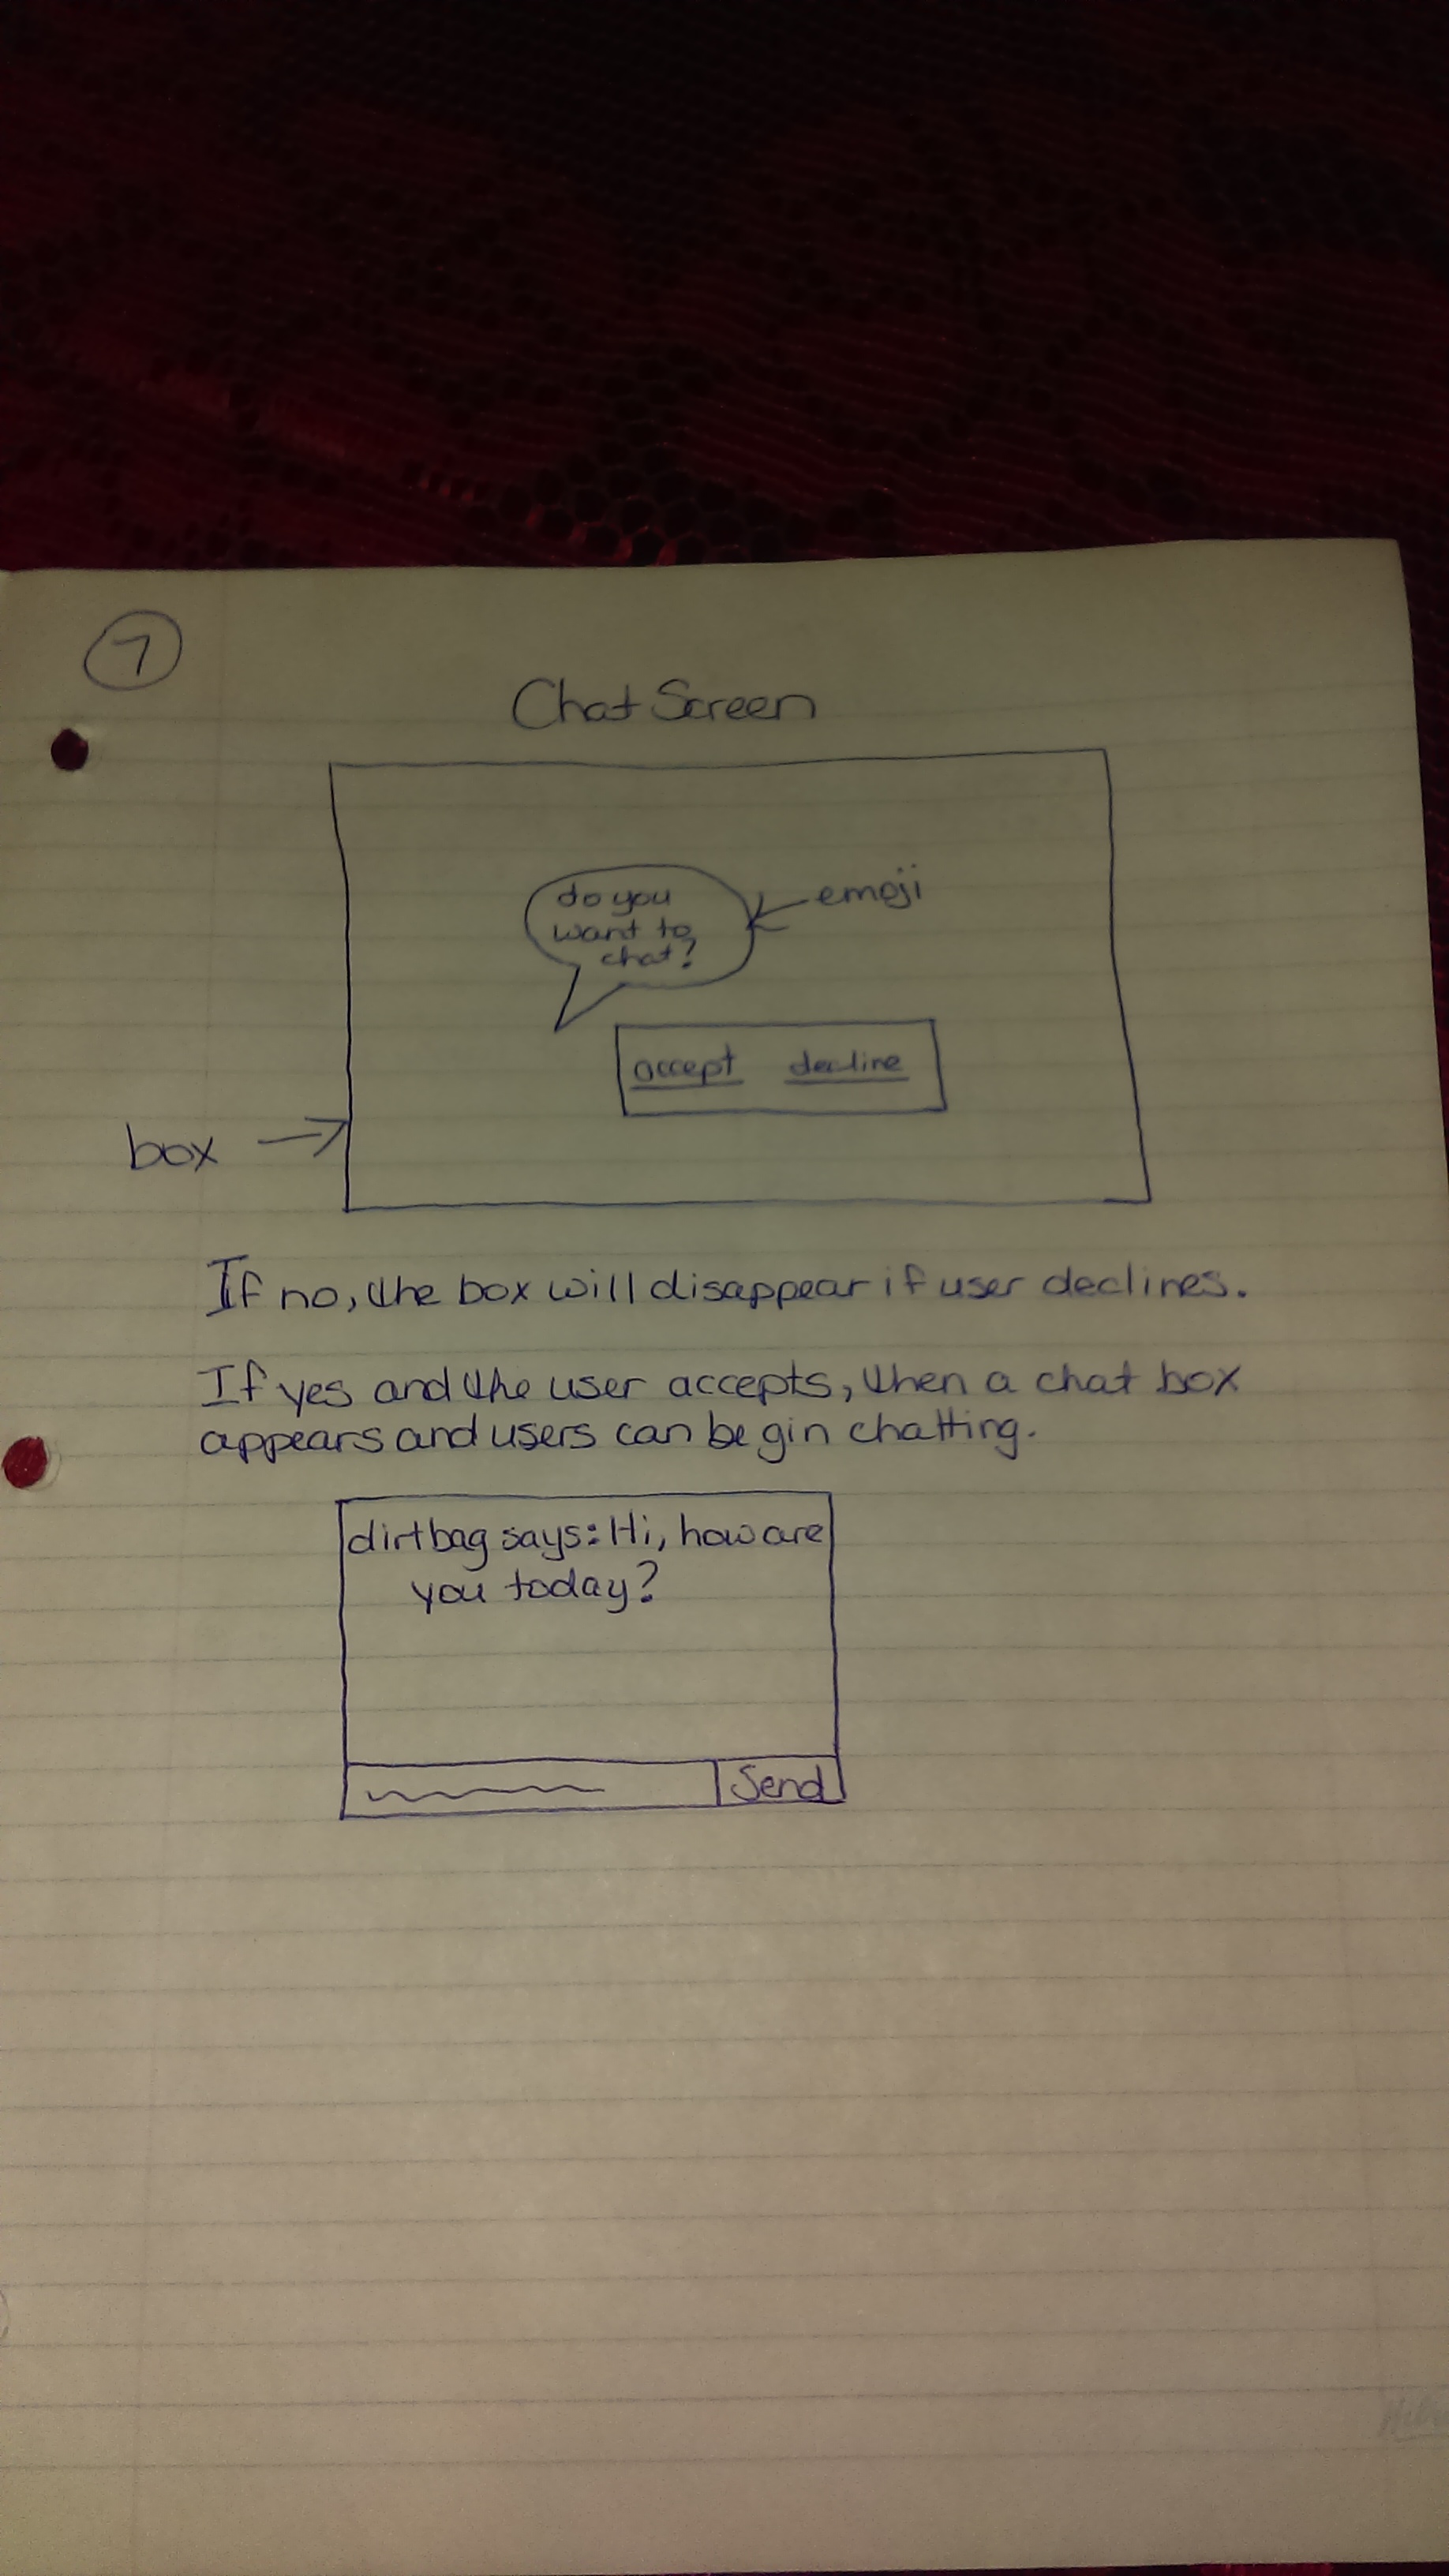 7
Chat Screen
do you
want to
chat?
emoji
accept decline
box
If no, the box will disappear if user declines.
If yes and the user accepts, then a chat box
appears and users can begin chatting.
dirtbag says: Hi, how are
you today?
Send